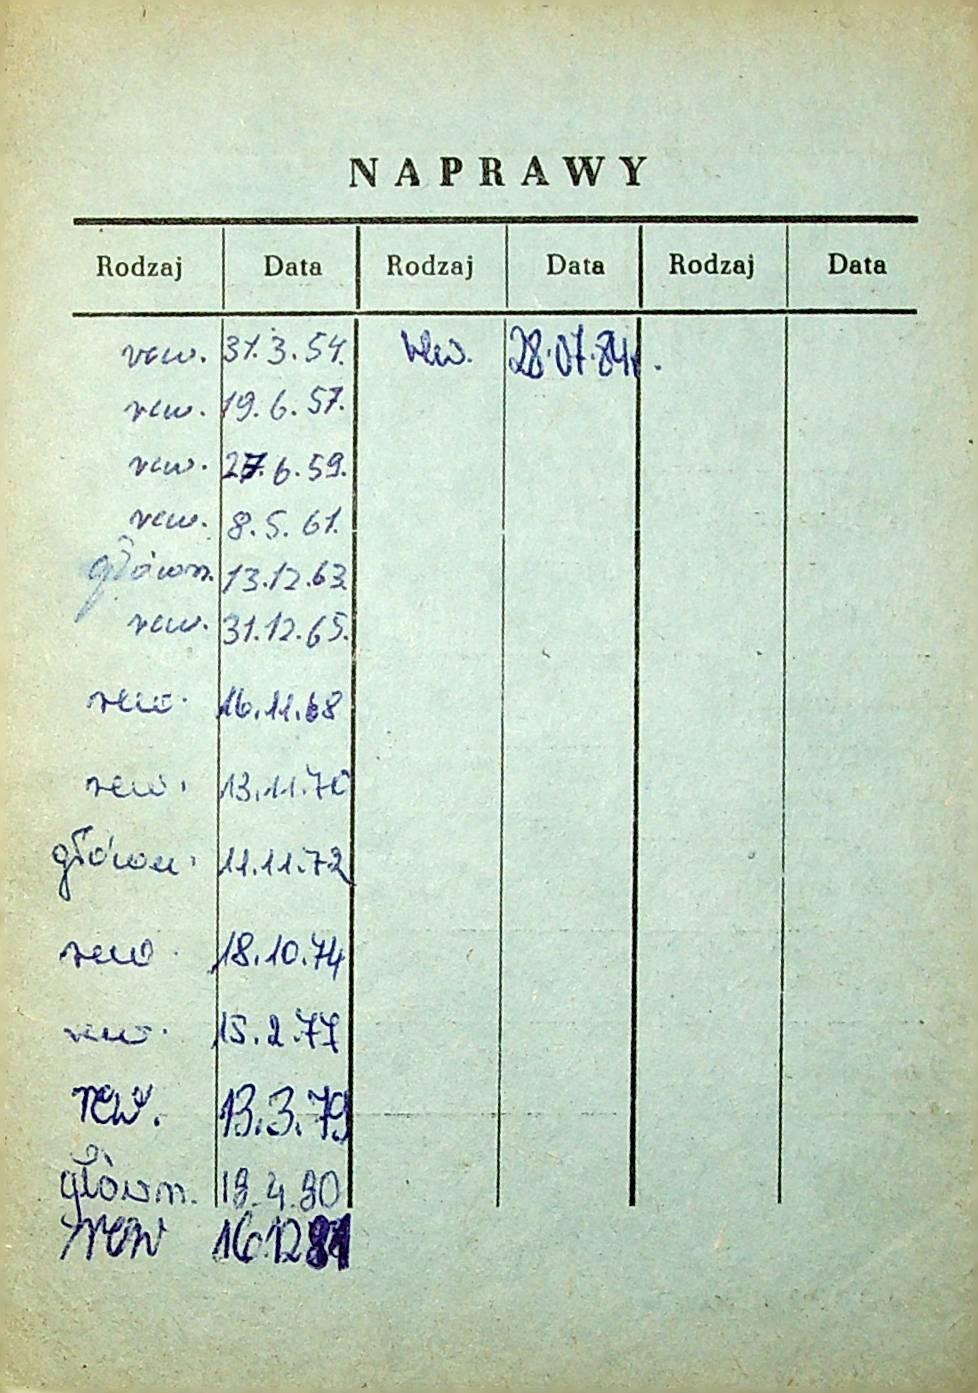 NAPRAWY
Rodzaj Data Rodzaj Data Rodzaj Data
rew. 31.3.54. rew. 28.07.84r.
rew. 19.6.57.
rew. 27.6.59.
rew. 8.5.61.
główn. 13.12.63
rew. 31.12.65.
rew. 16.11.68
rew. 13.11.70
główn. 11.11.72
rew. 18.10.74
rew. 15.2.77
rew. 13.3.79
główn. 19.4.80
rew 16.12 81